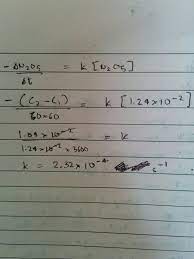 - ΔN₂O₅ / Δt = k [N₂O₅]
- (C₂ - C₁) / 60×60 = k [1.24×10⁻²]
1.04×10⁻² / 1.24×10⁻² × 3600 = k
k = 2.32×10⁻⁴ s⁻¹